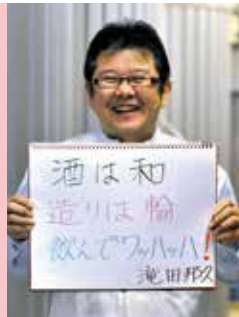 酒は和
造りは輪
飲んでワッハッハ!
滝田邦久